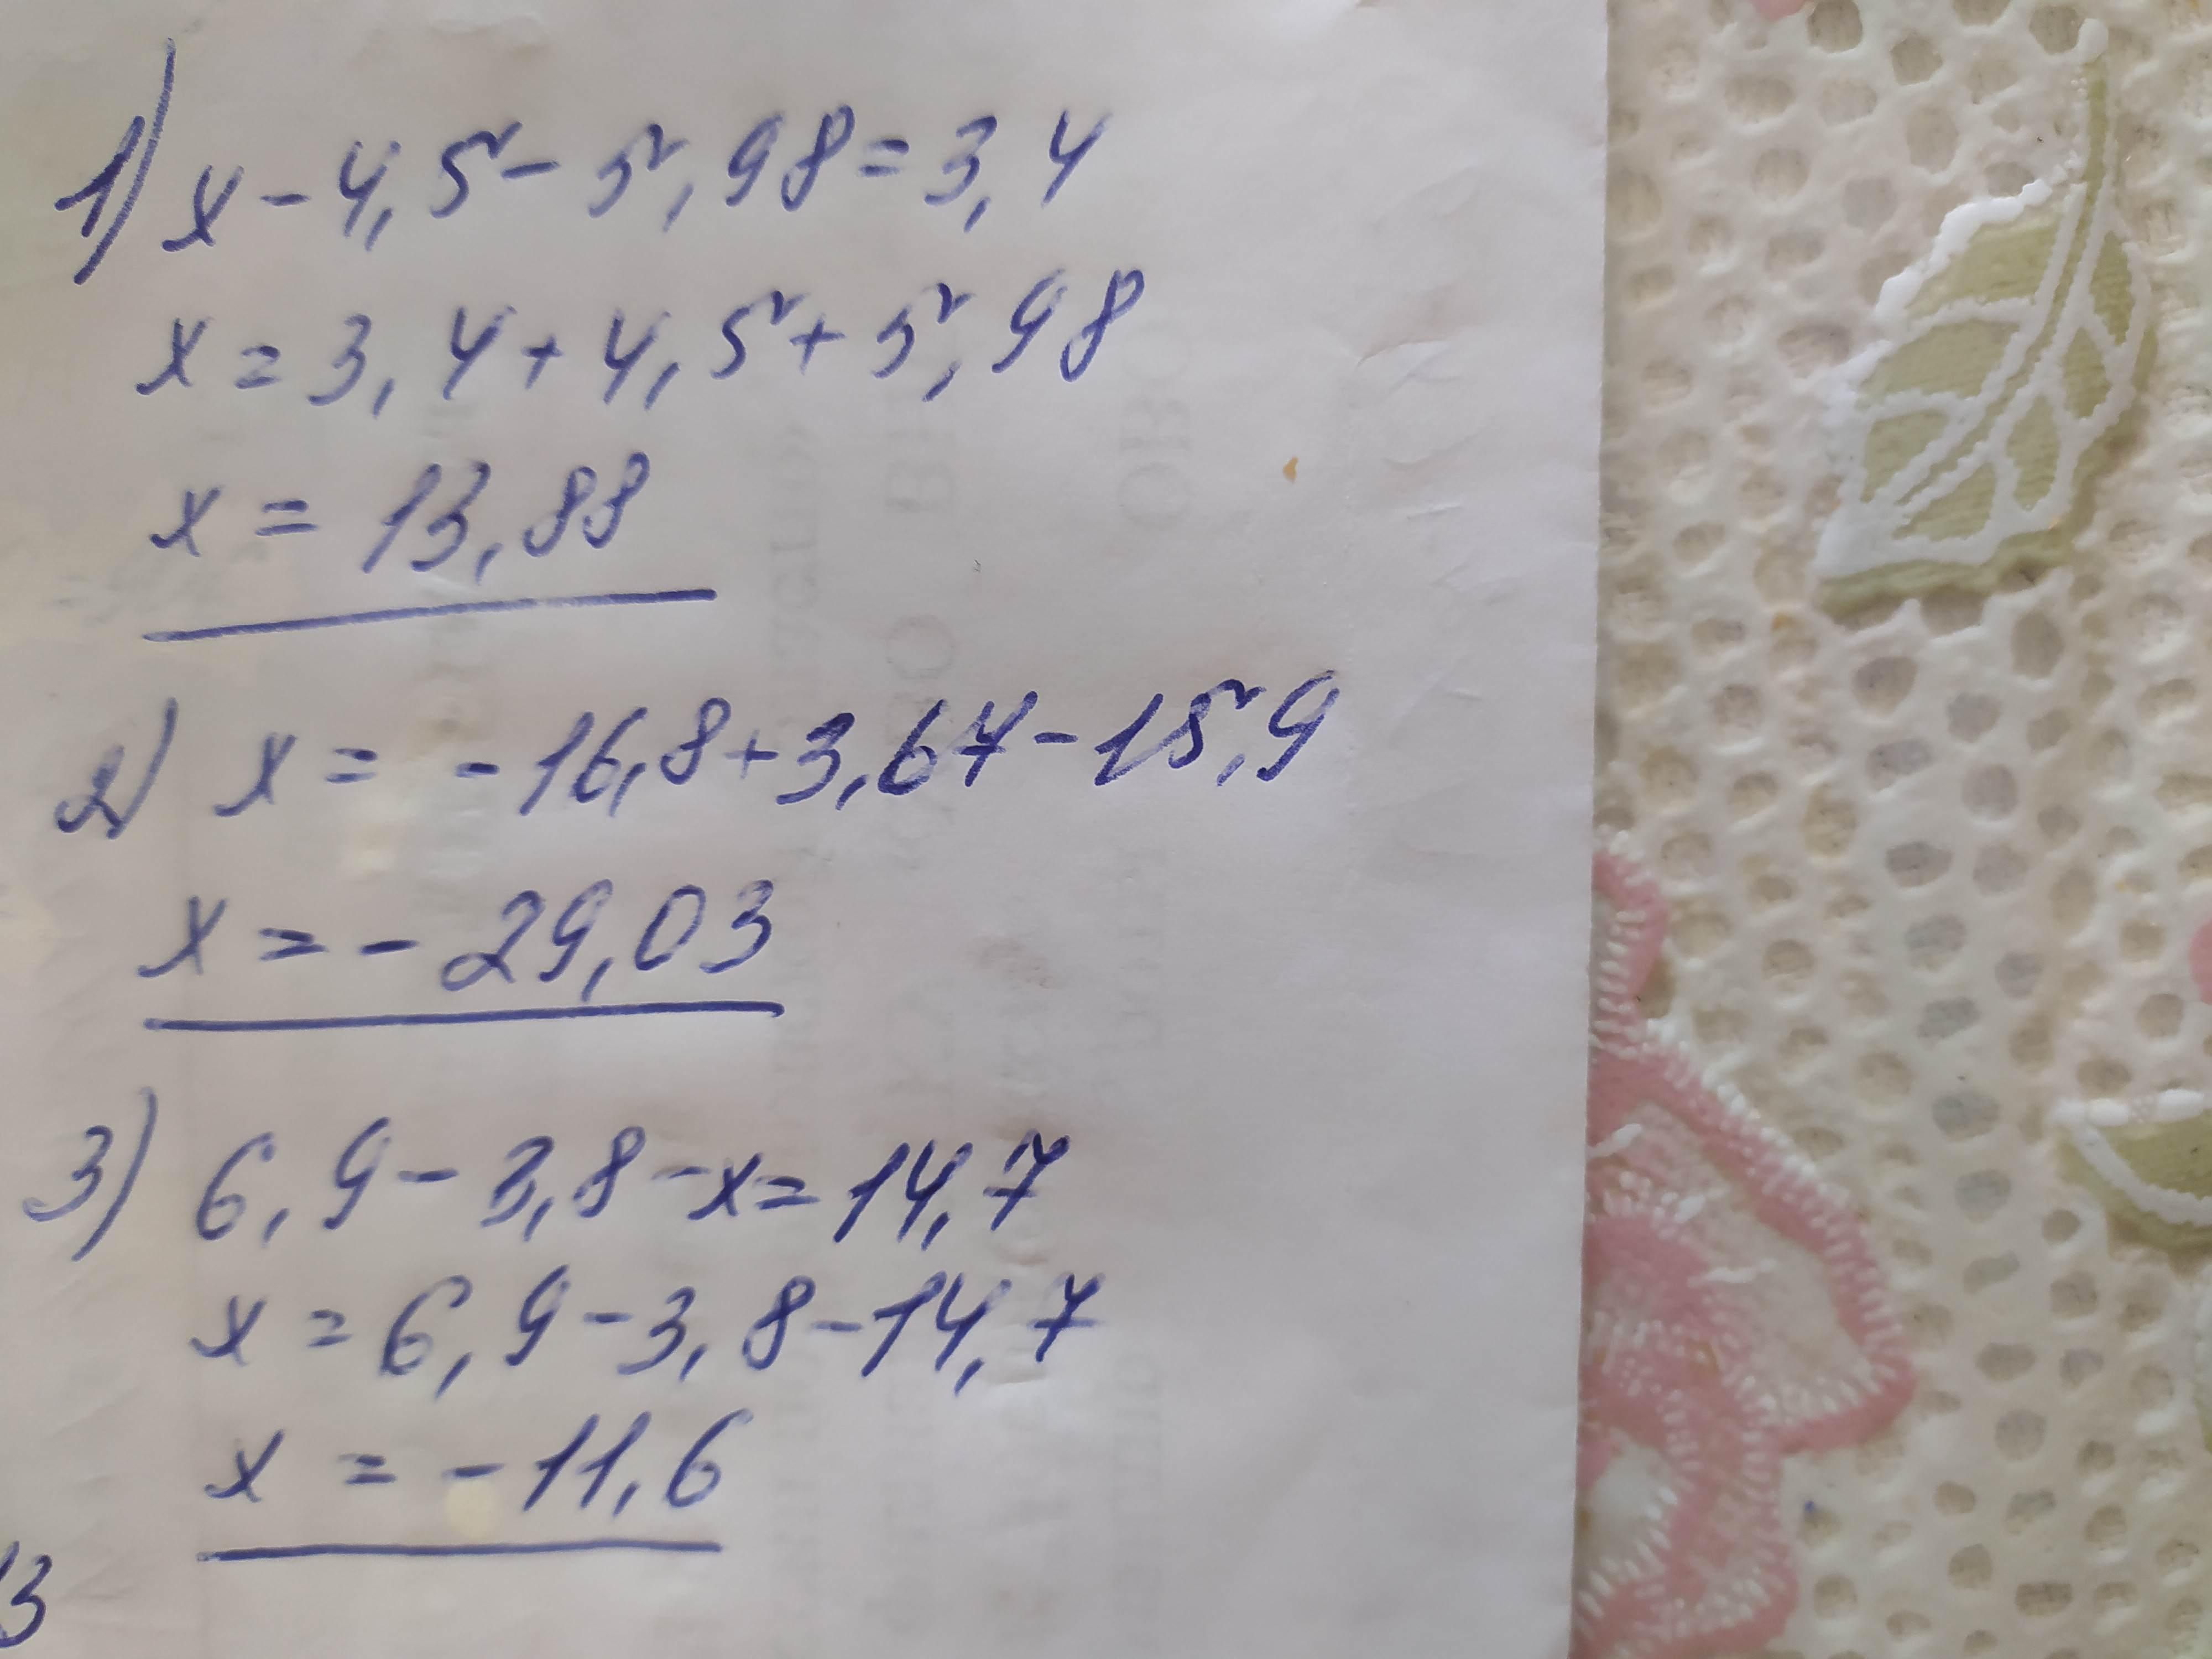 1) x - 4,5 - 5,98 = 3,4
x = 3,4 + 4,5 + 5,98
x = 13,88
2) x = -16,8 + 3,67 - 15,9
x = - 29,03
3) 6,9 - 3,8 - x = 14,7
x = 6,9 - 3,8 - 14,7
x = - 11,6